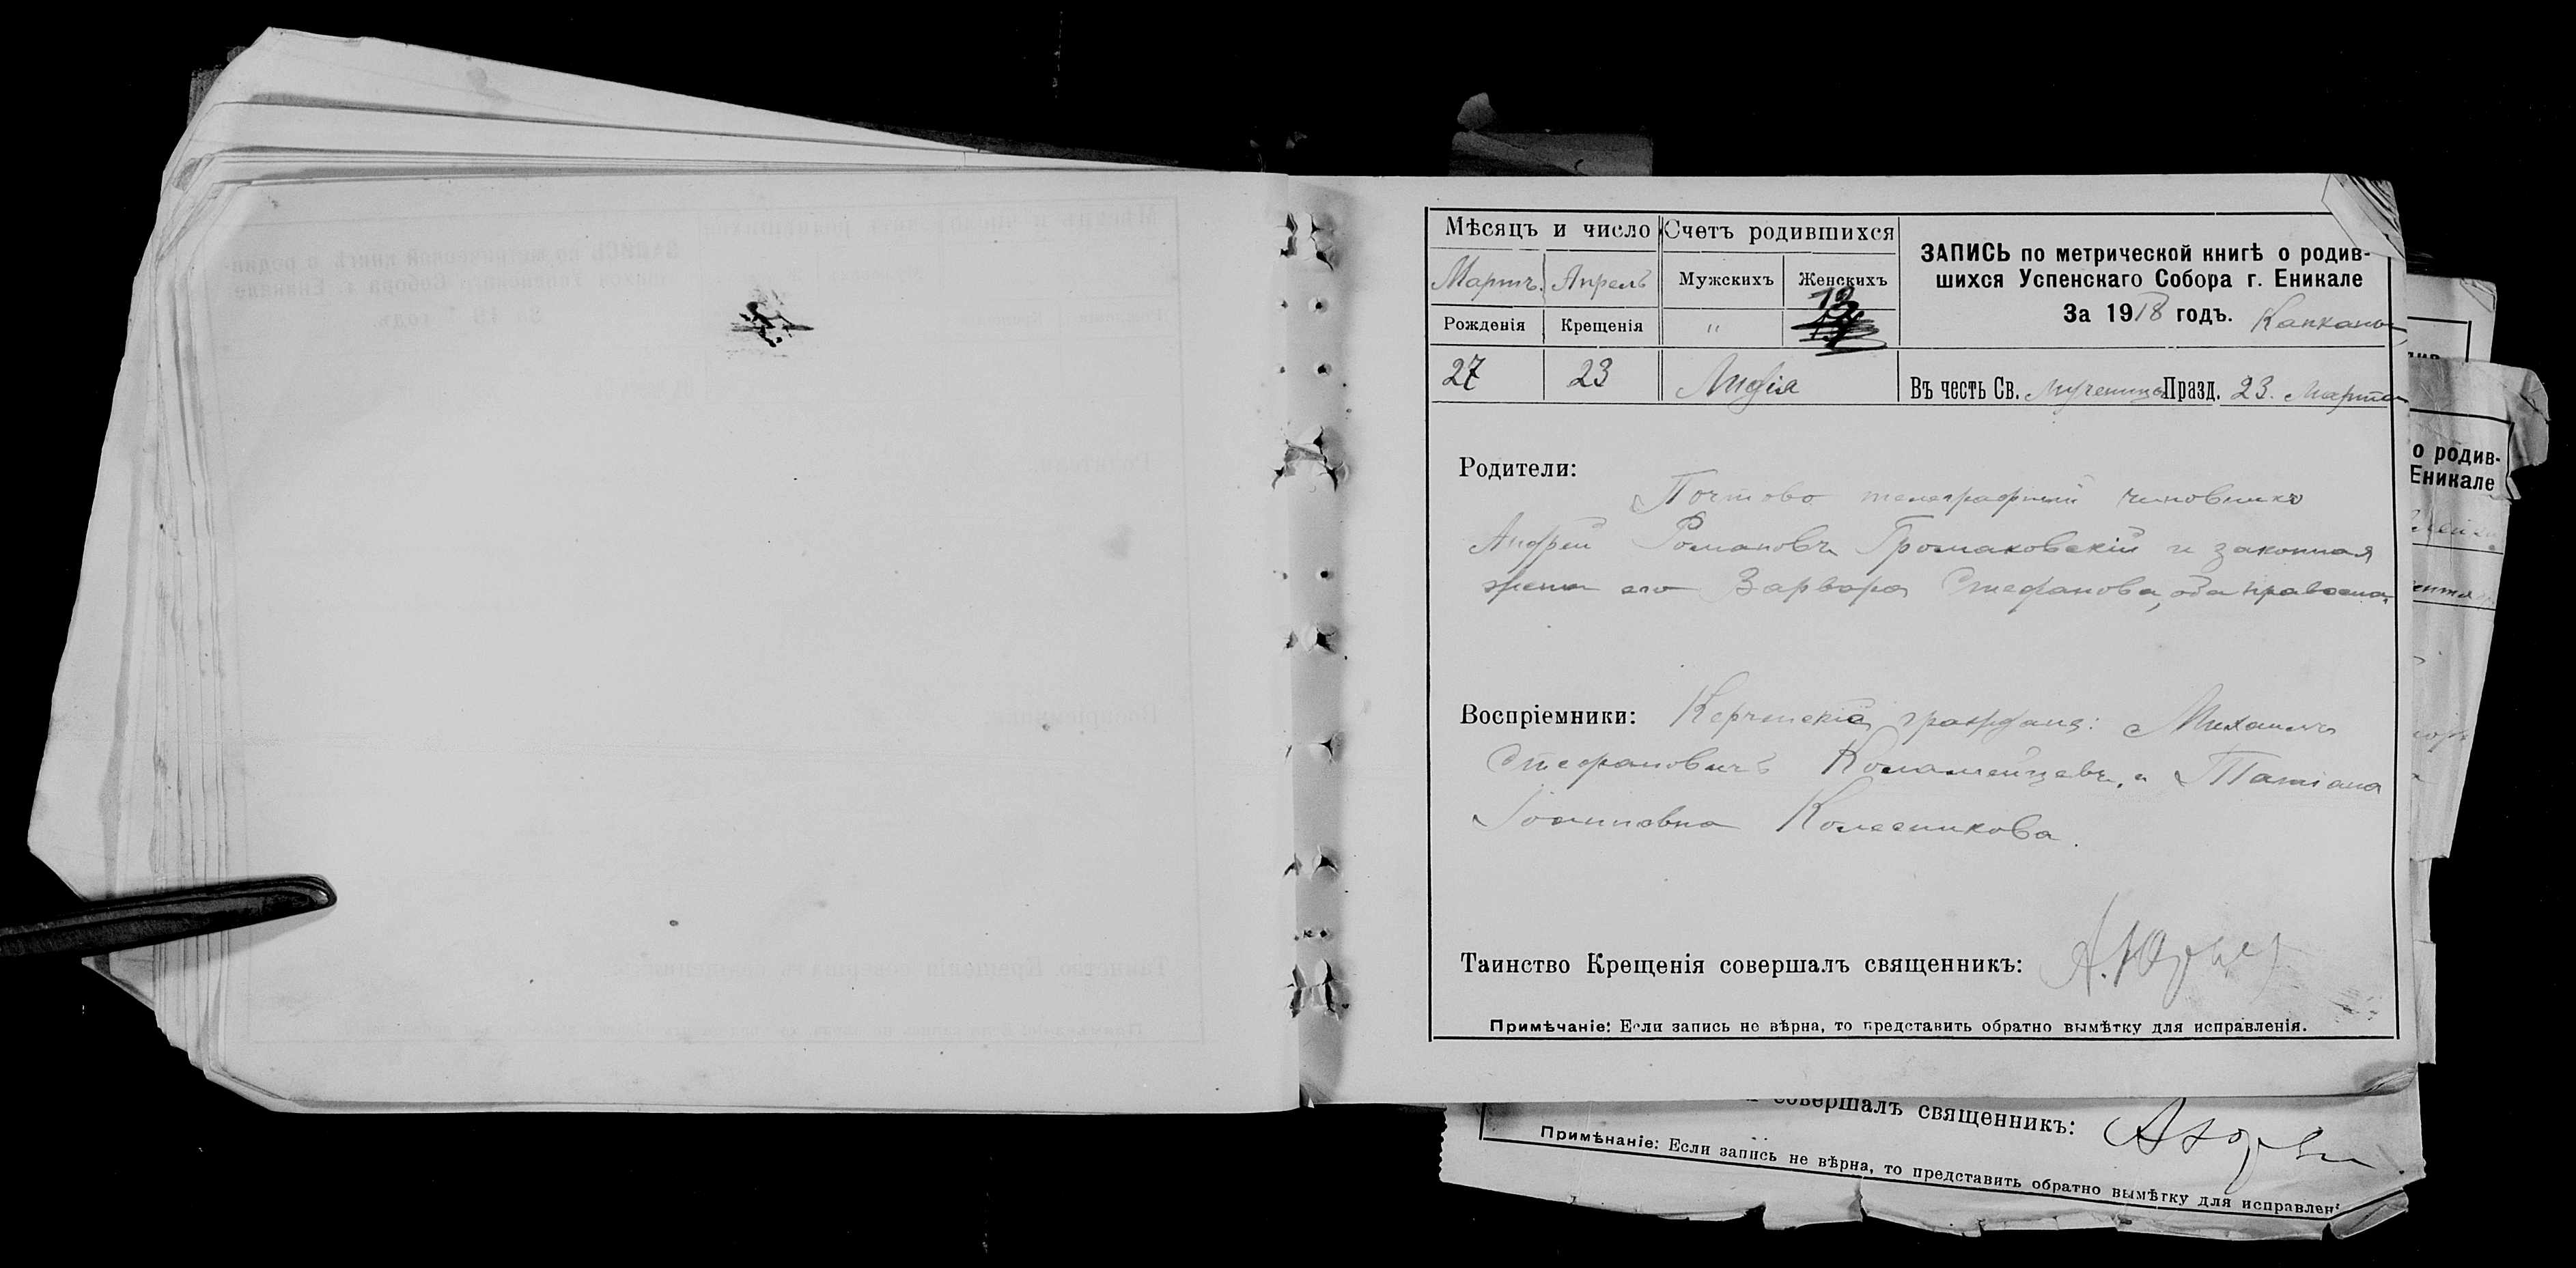 Мѣсяцъ и число
Счетъ родившихся
Мартъ. Апрель
Мужскихъ Женскихъ
Рожденія Крещенія
"
ЗАПИСЬ по метрической книгѣ о родив-
шихся Успенскаго Собора г. Еникале
За 1918 годъ. Капканы
27 23 Лидія
Въ честь Св. мученицы Празд. 23. Марта
Родители:
Почтово телеграфный чиновникъ
Андрей Романовъ Громаковскій и законная
жена его Варвара Стефанова, оба правосла.
Воспріемники: Керченскіе граждане: Михаилъ
Стефановичъ Коломейцевъ, и Татіана
Іоанновна Колесникова.
Таинство Крещенія совершалъ священникъ:
Примѣчаніе: Если запись не вѣрна, то представить обратно вымѣтку для исправленія.
о родив-
Еникале
совершалъ священникъ:
Примѣнаніе: Если запись не вѣрна, то представить обратно вымѣтку для исправлен